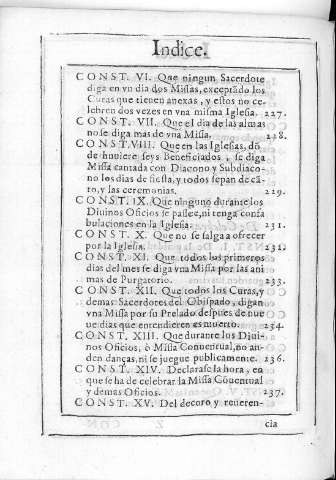 Indice.
CONST. VI. Que ningun Sacerdote
diga en vn dia dos Missas, exceptãdo los
Curas que tienen anexas, y estos no ce-
lebren dos vezes en vna misma Iglesia. 227.
CONST. VII. Que el dia de las almas
no se diga mas de vna Missa. 228.
CONST. VIII. Que en las Iglesias, dõ
de huviere seys Beneficiados, se diga
Missa cantada con Diacono y Subdiaco-
no los dias de fiesta, y todos sepan de cã-
to, y las ceremonias. 229.
CONST. IX. Que ninguno durante los
Diuinos Oficios se passee, ni tenga confa
bulaciones en la Iglesia. 231.
CONST. X. Que no se salga a ofrecer
por la Iglesia. 232.
CONST. XI. Que todos los primeros
dias del mes se diga vna Missa por las ani
mas de Purgatorio. 233.
CONST. XII. Que todos los Curas, y
demas Sacerdotes del Obispado, digan
vna Missa por su Prelado despues de nue
ue dias que entendieren es muerto. 234.
CONST. XIII. Que durante los Diui-
nos Oficios, ò Missa Conuentual, no an-
den danças, ni se juegue publicamente. 236.
CONST. XIV. Declarase la hora, en
que se ha de celebrar la Missa Cõuentual
y demas Oficios. 237.
CONST. XV. Del decoro y reueren-
cia